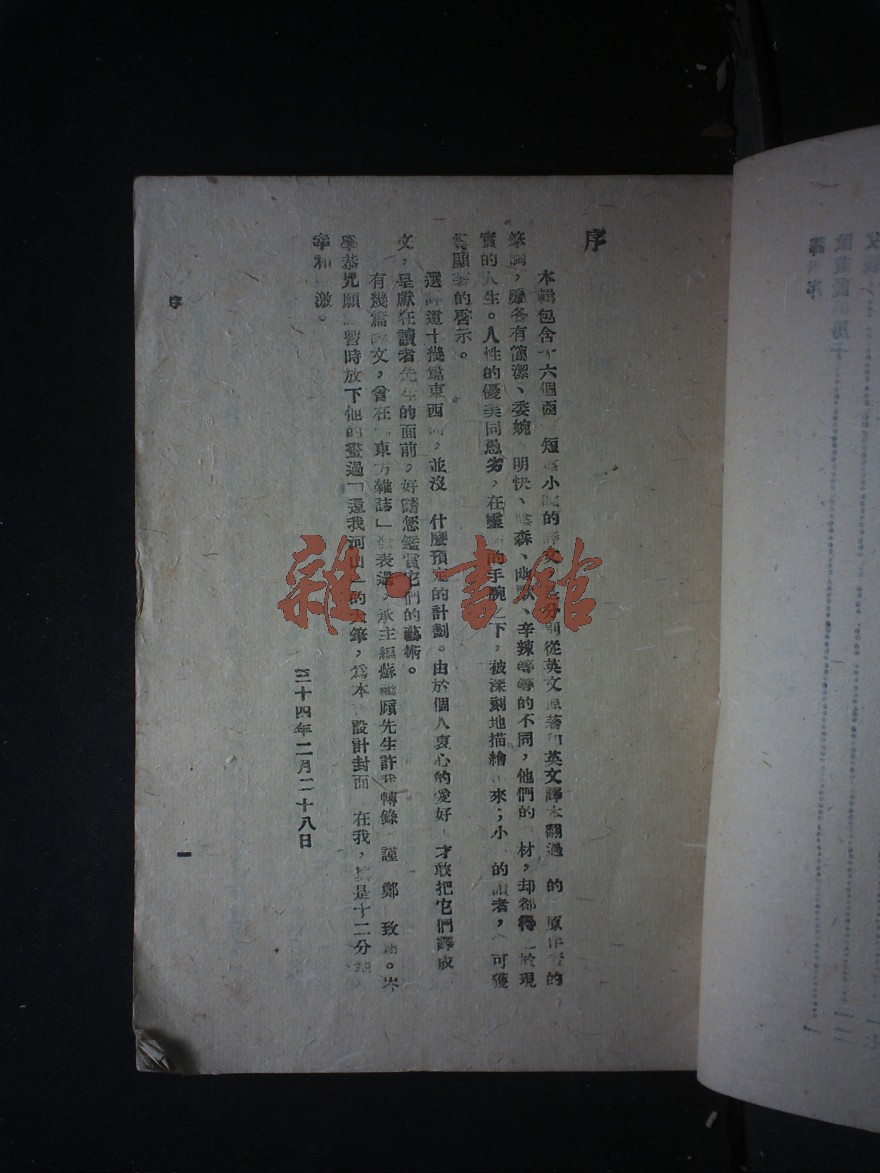 序
本輯包含十六個西 短篇小說的譯文 分別從英文原著和英文譯本翻過 的 原作者的
筆調，雖各有簡潔、委婉、明快、陰森、幽默、辛辣等等的不同，他們的 材，却都得 於現
實的人生。人性的優美同愚劣，在靈 的手腕之下，被深刻地描繪 來；小 的讀者， 可獲
顯著的啓示。
選譯這十幾篇東西 ，並沒 什麼預定的計劃。由於個人衷心的愛好，才敢把它們譯成
文，呈獻在讀者先生的面前，好請您鑑賞它們的藝術。
有幾篇 文，曾在「東方雜誌」發表過，承主編蘇 先生許我轉錄 謹 鄭 致 。
恭兄願 暫時放下他的畫過「還我河山」的大筆，為本 設計封面 在我， 是十二分
和 激。
三十四年二月二十八日
序
一
雜·書館
譯 序